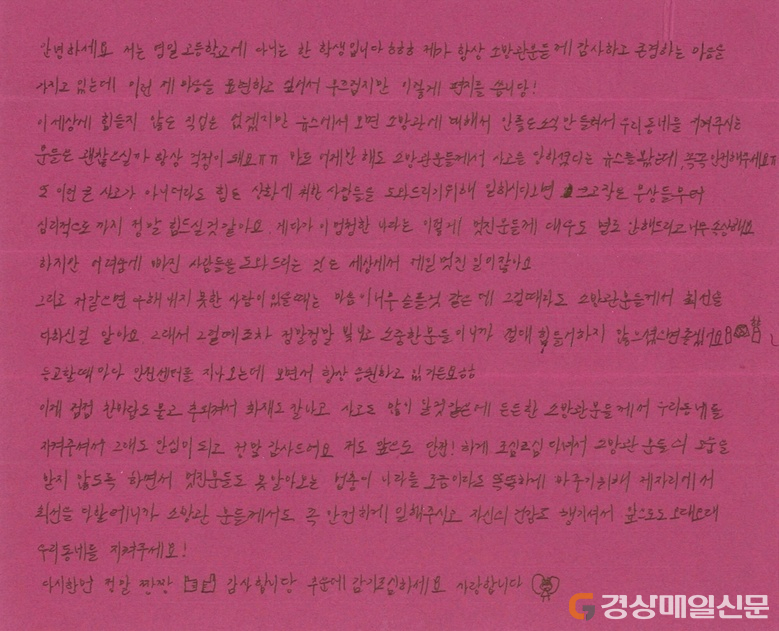 안녕하세요 저는 영일고등학교에 다니는 한 학생입니다 하하하 제가 항상 소방관분들께 감사하고 존경하는 마음을
가지고 있는데 이런 제 마음을 표현하고 싶어서 부끄럽지만 이렇게 편지를 씁니당!
이 세상에 힘들지 않은 직업은 없겠지만 뉴스에서 보면 소방관에 대해서 안좋은 소식만 들려서 우리동네를 지켜주시는
분들은 괜찮으실까 항상 걱정이 돼요ㅠㅠ 바로 어제만 해도 소방관분들께서 사고를 당하셨다는 뉴스를 봤는데, 꼭꼭 안전해주세요ㅠ
또 이런 큰 사고가 아니더라도 힘든 상황에 처한 사람들을 도와드리기위해 일하시다보면 크고작은 부상들부터
심리적으로까지 정말 힘드실것같아요. 게다가 이 멍청한 나라는 이렇게 멋진분들께 대우도 별로 안해드리고 너무 속상해요
하지만 어려움에 빠진 사람들을 도와드리는 것은 세상에서 제일 멋진 일이잖아요
그리고 저같으면 구해내지 못한 사람이 있을때는 마음이 너무 슬플것 같은데 그럴때라도 소방관분들께서 최선을
다하신걸 알아요 그래서 그럴때조차 정말정말 빛나고 소중한분들이니까 절대 힘들어하지 않으셨으면좋겠어요
등교할때마다 안전센터를 지나오는데 보면서 항상 응원하고 있거든요ㅎㅎ
이제 점점 찬바람도 불고 추워져서 화재도 잘나고 사고도 많이 날것같은데 든든한 소방관분들께서 우리동네를
지켜주셔서 그래도 안심이 되고 정말 감사드려요 저도 앞으로 안전! 하게 조심조심 다녀서 소방관 분들의 도움을
받지 않도록 하면서 멋진분들도 못알아보는 멍충이 나라를 조금이라도 똑똑하게 바꾸기위해 제자리에서
최선을 다할테니까 소방관 분들께서도 꼭 안전하게 일해주시고 자신의 건강도 챙기셔서 앞으로도 오래오래
우리동네를 지켜주세요!
다시한번 정말 짱짱 감사합니당 추운데 감기조심하세요 사랑합니다
경상매일신문